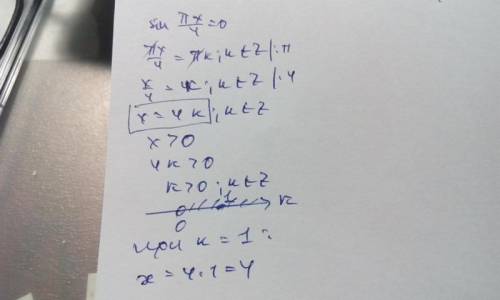 sin πx/4 = 0
πx/4 = πk ; k ∈ Z |: π
x/4 = k ; k ∈ Z |· 4
x = 4k ; k ∈ Z
x > 0
4k > 0
k > 0 ; k ∈ Z
0 1 k
0
при k = 1 :
x = 4 · 1 = 4